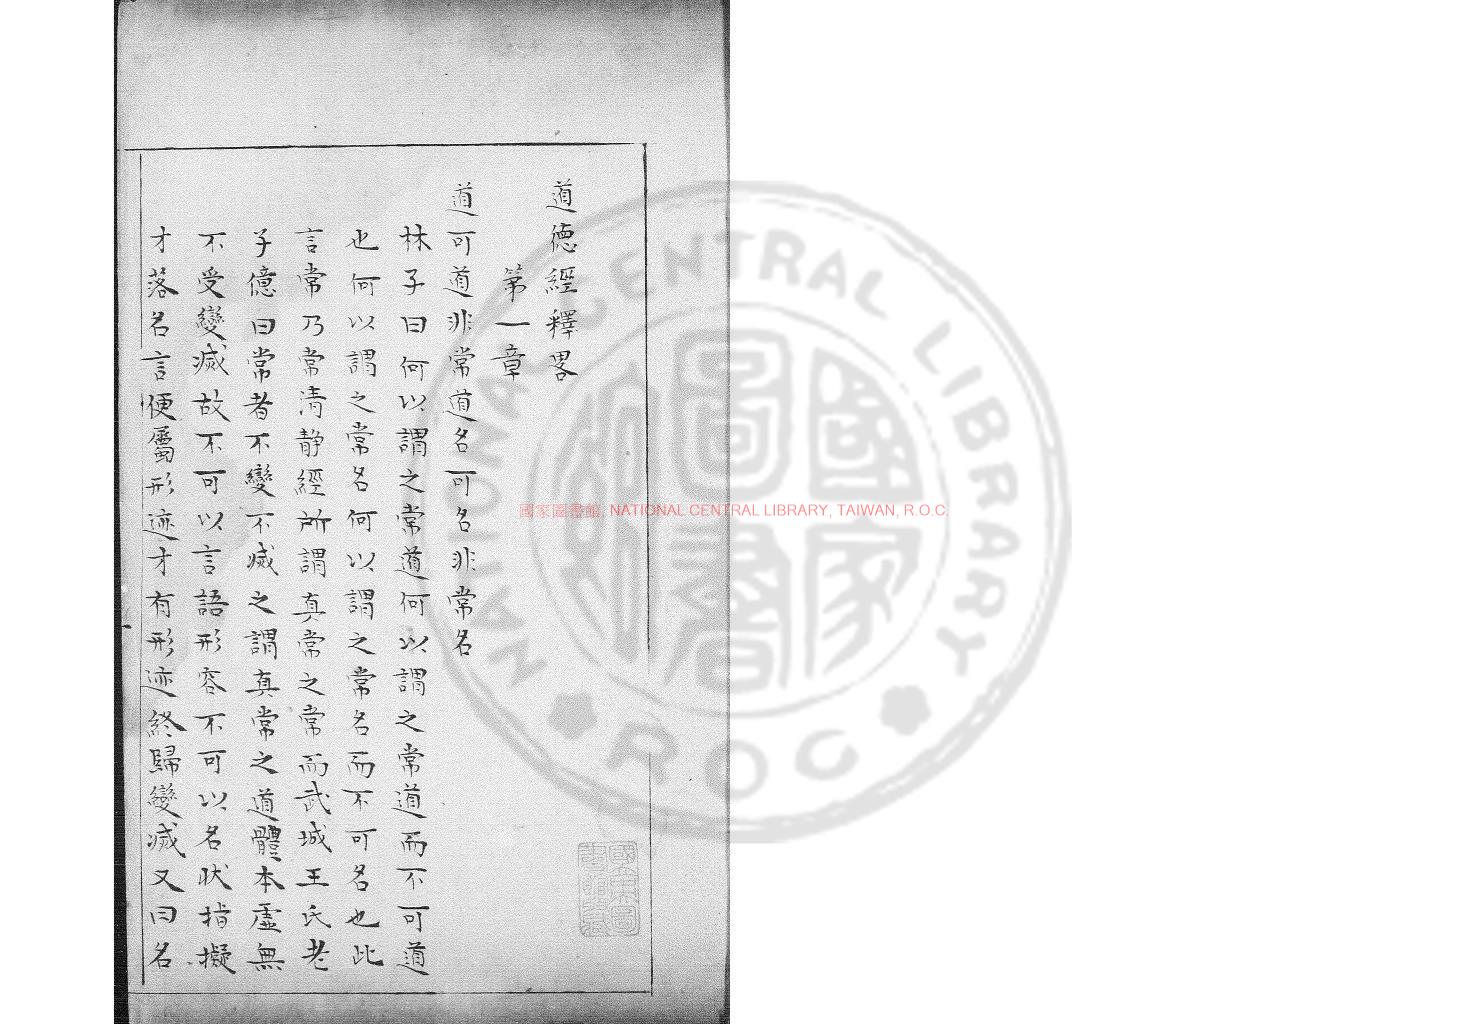 道德經釋畧
第一章
道可道非常道名可名非常名
林子曰何以謂之常道何以謂之常道而不可道
也何以謂之常名何以謂之常名而不可名也此
言常乃常清靜經所謂真常之常而武城王氏老
子億曰常者不變不滅之謂真常之道體本虛無
不受變滅故不可以言語形容不可以名狀指擬
才落名言便屬形迹才有形迹終歸變滅又曰名
國家圖書館, NATIONAL CENTRAL LIBRARY, TAIWAN, R.O.C
NATIONAL CENTRAL LIBRARY
ROC
國家圖書